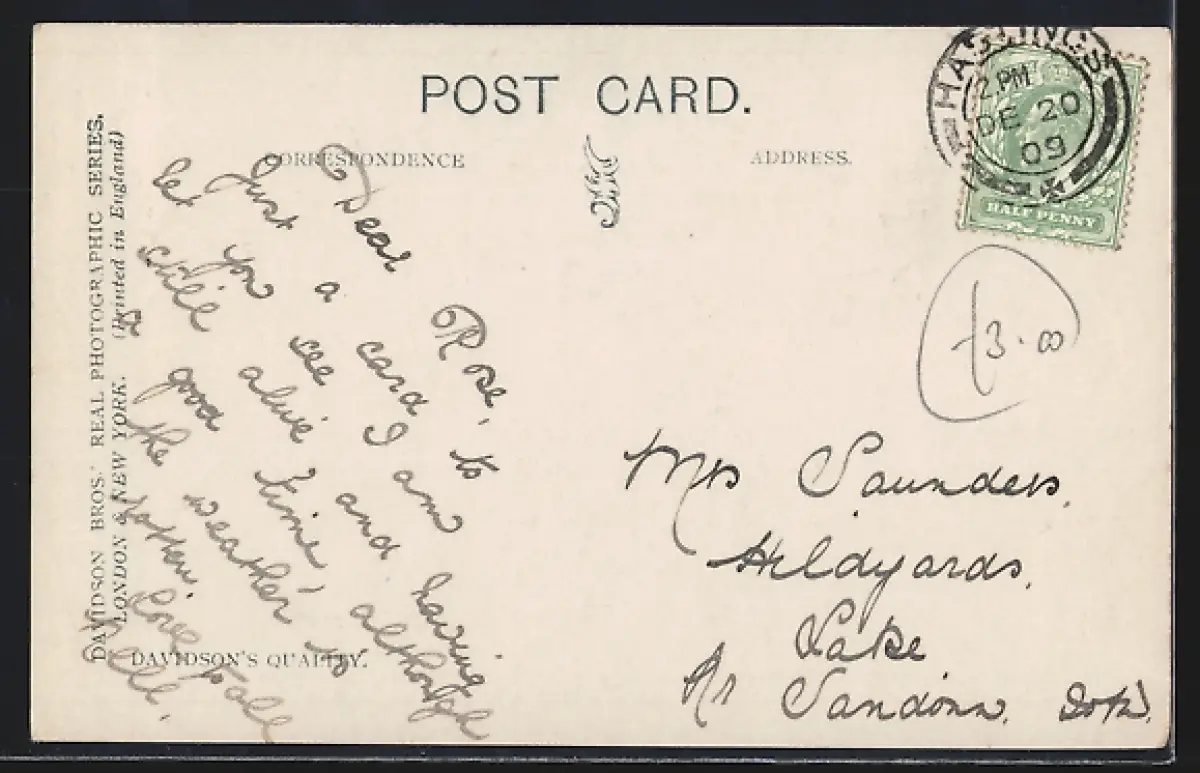 POST CARD.
CORRESPONDENCE
ADDRESS.
HASTINGS
2.PM
DE 20
09
HALF PENNY
DAVIDSON BROS.' REAL PHOTOGRAPHIC SERIES.
LONDON & NEW YORK. (Printed in England)
DAVIDSON'S QUALITY.
Dear Rose,
Just a card to
let you see I am
still alive and having
a good time, although
the weather is
rotten. love to all
Nell.
£3.00
Mrs Saunders.
Hildyards.
Lake
Nr Sandown. IoW.